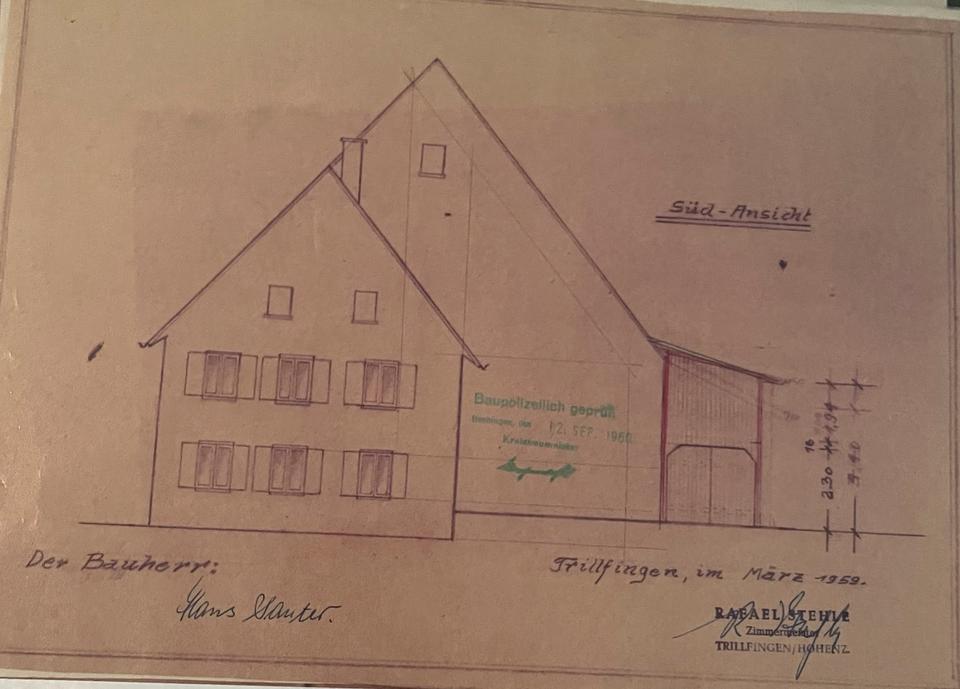 Süd-Ansicht
Baupolizeilich geprüft
Hechingen, den 12. SEP. 1960
Kreisbaumeister
16
2.30
1.94
Der Bauherr:
Trillfingen, im März 1959.
Hans Sauter.
RAFAEL STEHLE
Zimmermeister
TRILLFINGEN/HOHENZ.